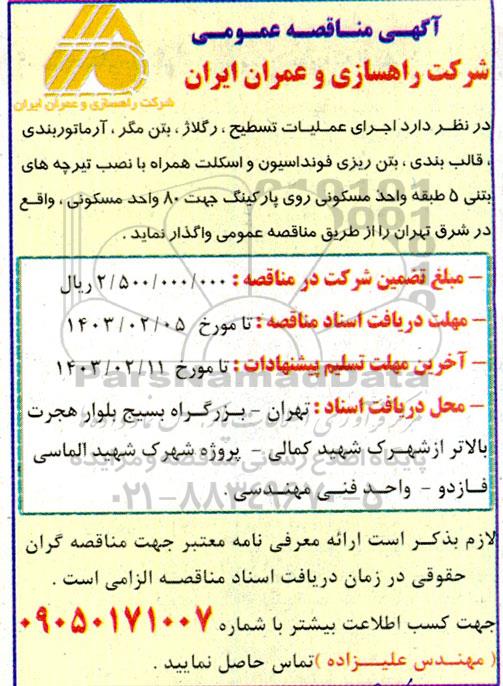 آگهـی منـاقصـه عمـومـی
شرکت راهسازی و عمران ایران
شرکت راهسازی و عمران ایران
در نظـر دارد اجرای عملـیات تسطیح ، رگلاژ ، بتن مگر ، آرماتوربندی
، قالب بندی ، بتن ریزی فونداسیون و اسکلت همراه با نصب تیرچه های
بتنی ۵ طبقه واحد مسکونی روی پارکینگ جهت ۸۰ واحد مسکونی ، واقـع
در شرق تهران را از طریق مناقصه عمومی واگذار نماید .
– مبلغ تضمین شرکت در مناقصه : ۲/۵۰۰/۰۰۰/۰۰۰ ریال
– مهلت دریافت اسناد مناقصه : تا مورخ ۱۴۰۳/۰۲/۰۵
– آخرین مهلت تسلیم پیشنهادات : تا مورخ ۱۴۰۳/۰۲/۱۱
ParsNamadData
– محل دریافت اسناد : تهران – بـزرگـراه بسیج بلوار هجرت
بالاتر از شهـرک شهید کمالی – پروژه شهرک شهید الماسی
پایگاه اطلاع رسانی مناقصه و مزایده
فـازدو – واحـد فنـی مهنـدسی .
۰۲۱-۸۸۳۴۹۶۷۰-۵
لازم بذکـر است ارائه معرفی نامه معتبر جهت مناقصه گران
حقوقی در زمان دریافت اسناد مناقصـه الزامی است .
جهت کسب اطلاعت بیشتر با شماره ۰۹۰۵۰۱۷۱۰۰۷
( مهنـدس علیـزاده ) تماس حاصل نمایید .